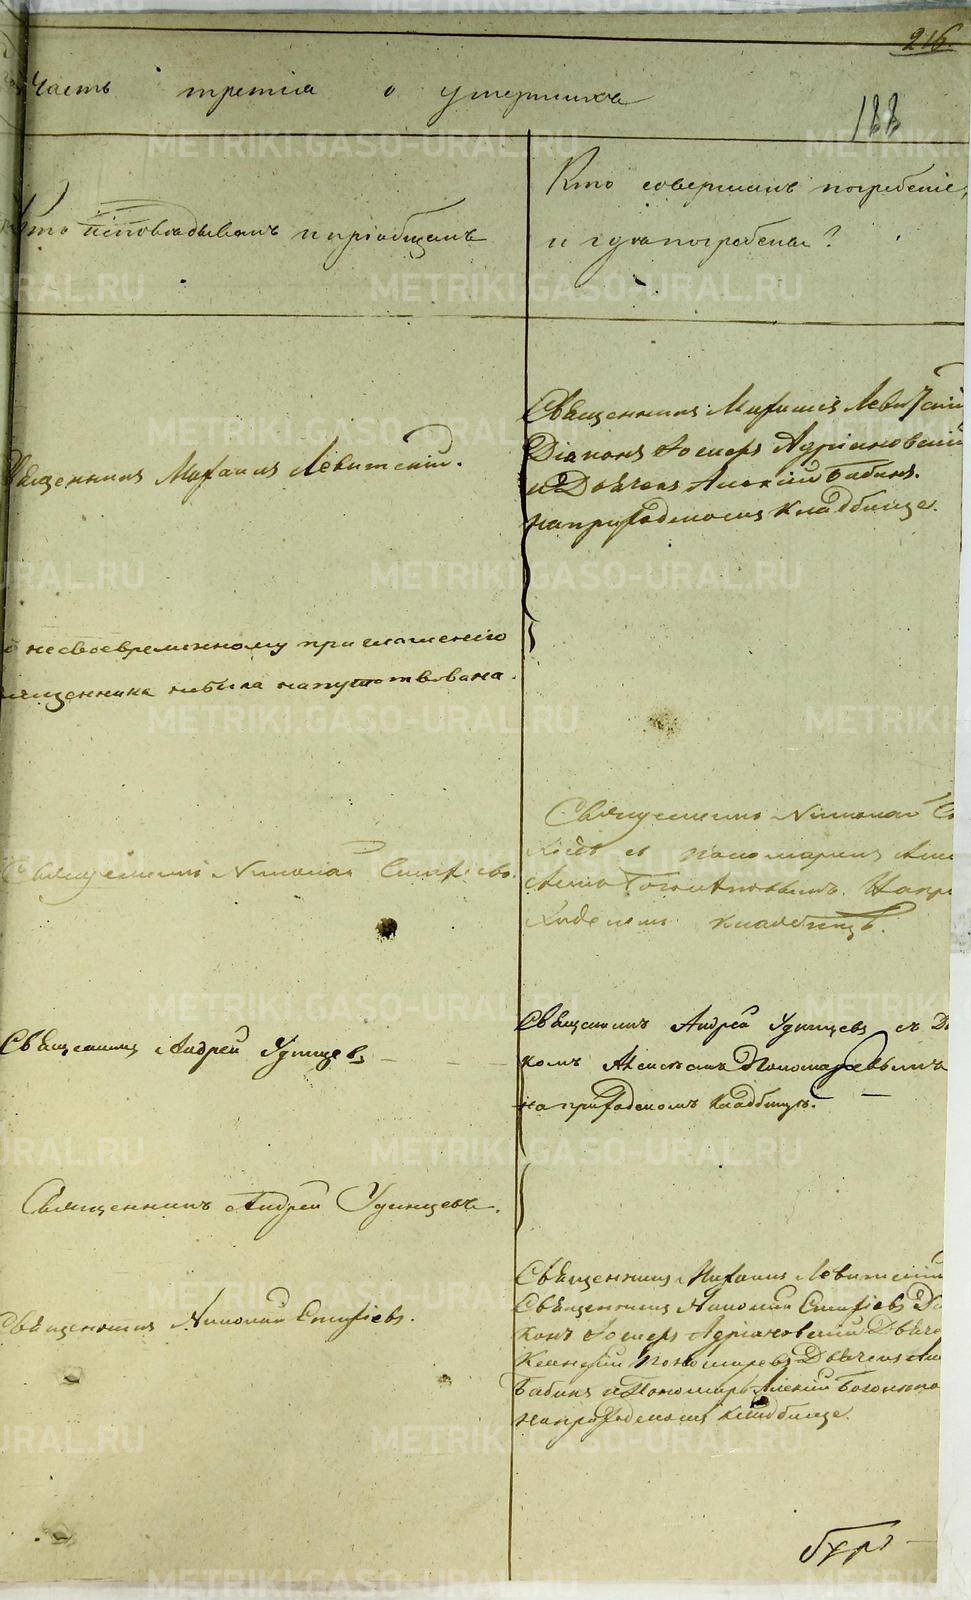 216.
Часть третія о умершихъ
188
Кто исповѣдывалъ и пріобщалъ
Кто совершалъ погребеніе,
и гдѣ погребены?
Священникъ Михаилъ Левитскій.
Священникъ Михаилъ Левитскій
Діаконъ Іосифъ Адріановскій
и Дьячекъ Алексій Бабинъ.
на приходскомъ кладбище.
несвоевременному приглашенію
священника небыла напутствована.
Священникъ Николай
Священникъ Николай
съ пономаремъ
Напри
ходскомъ кладбищѣ.
Священникъ Андрей Удинцевъ
Священникъ Андрей Удинцевъ съ Дья
комъ Пономаревымъ
на приходскомъ кладбищѣ.
Священникъ Андрей Удинцевъ.
Священникъ Николай
Священникъ Михаилъ Левитскій
Священникъ Николай Діа
конъ Іосифъ Адріановскій Дьячо
Пономаревъ Дьячекъ Але
Бабинъ и Пономарь Алексій
на приходскомъ кладбище.
METRIKI.GASO-URAL.RU